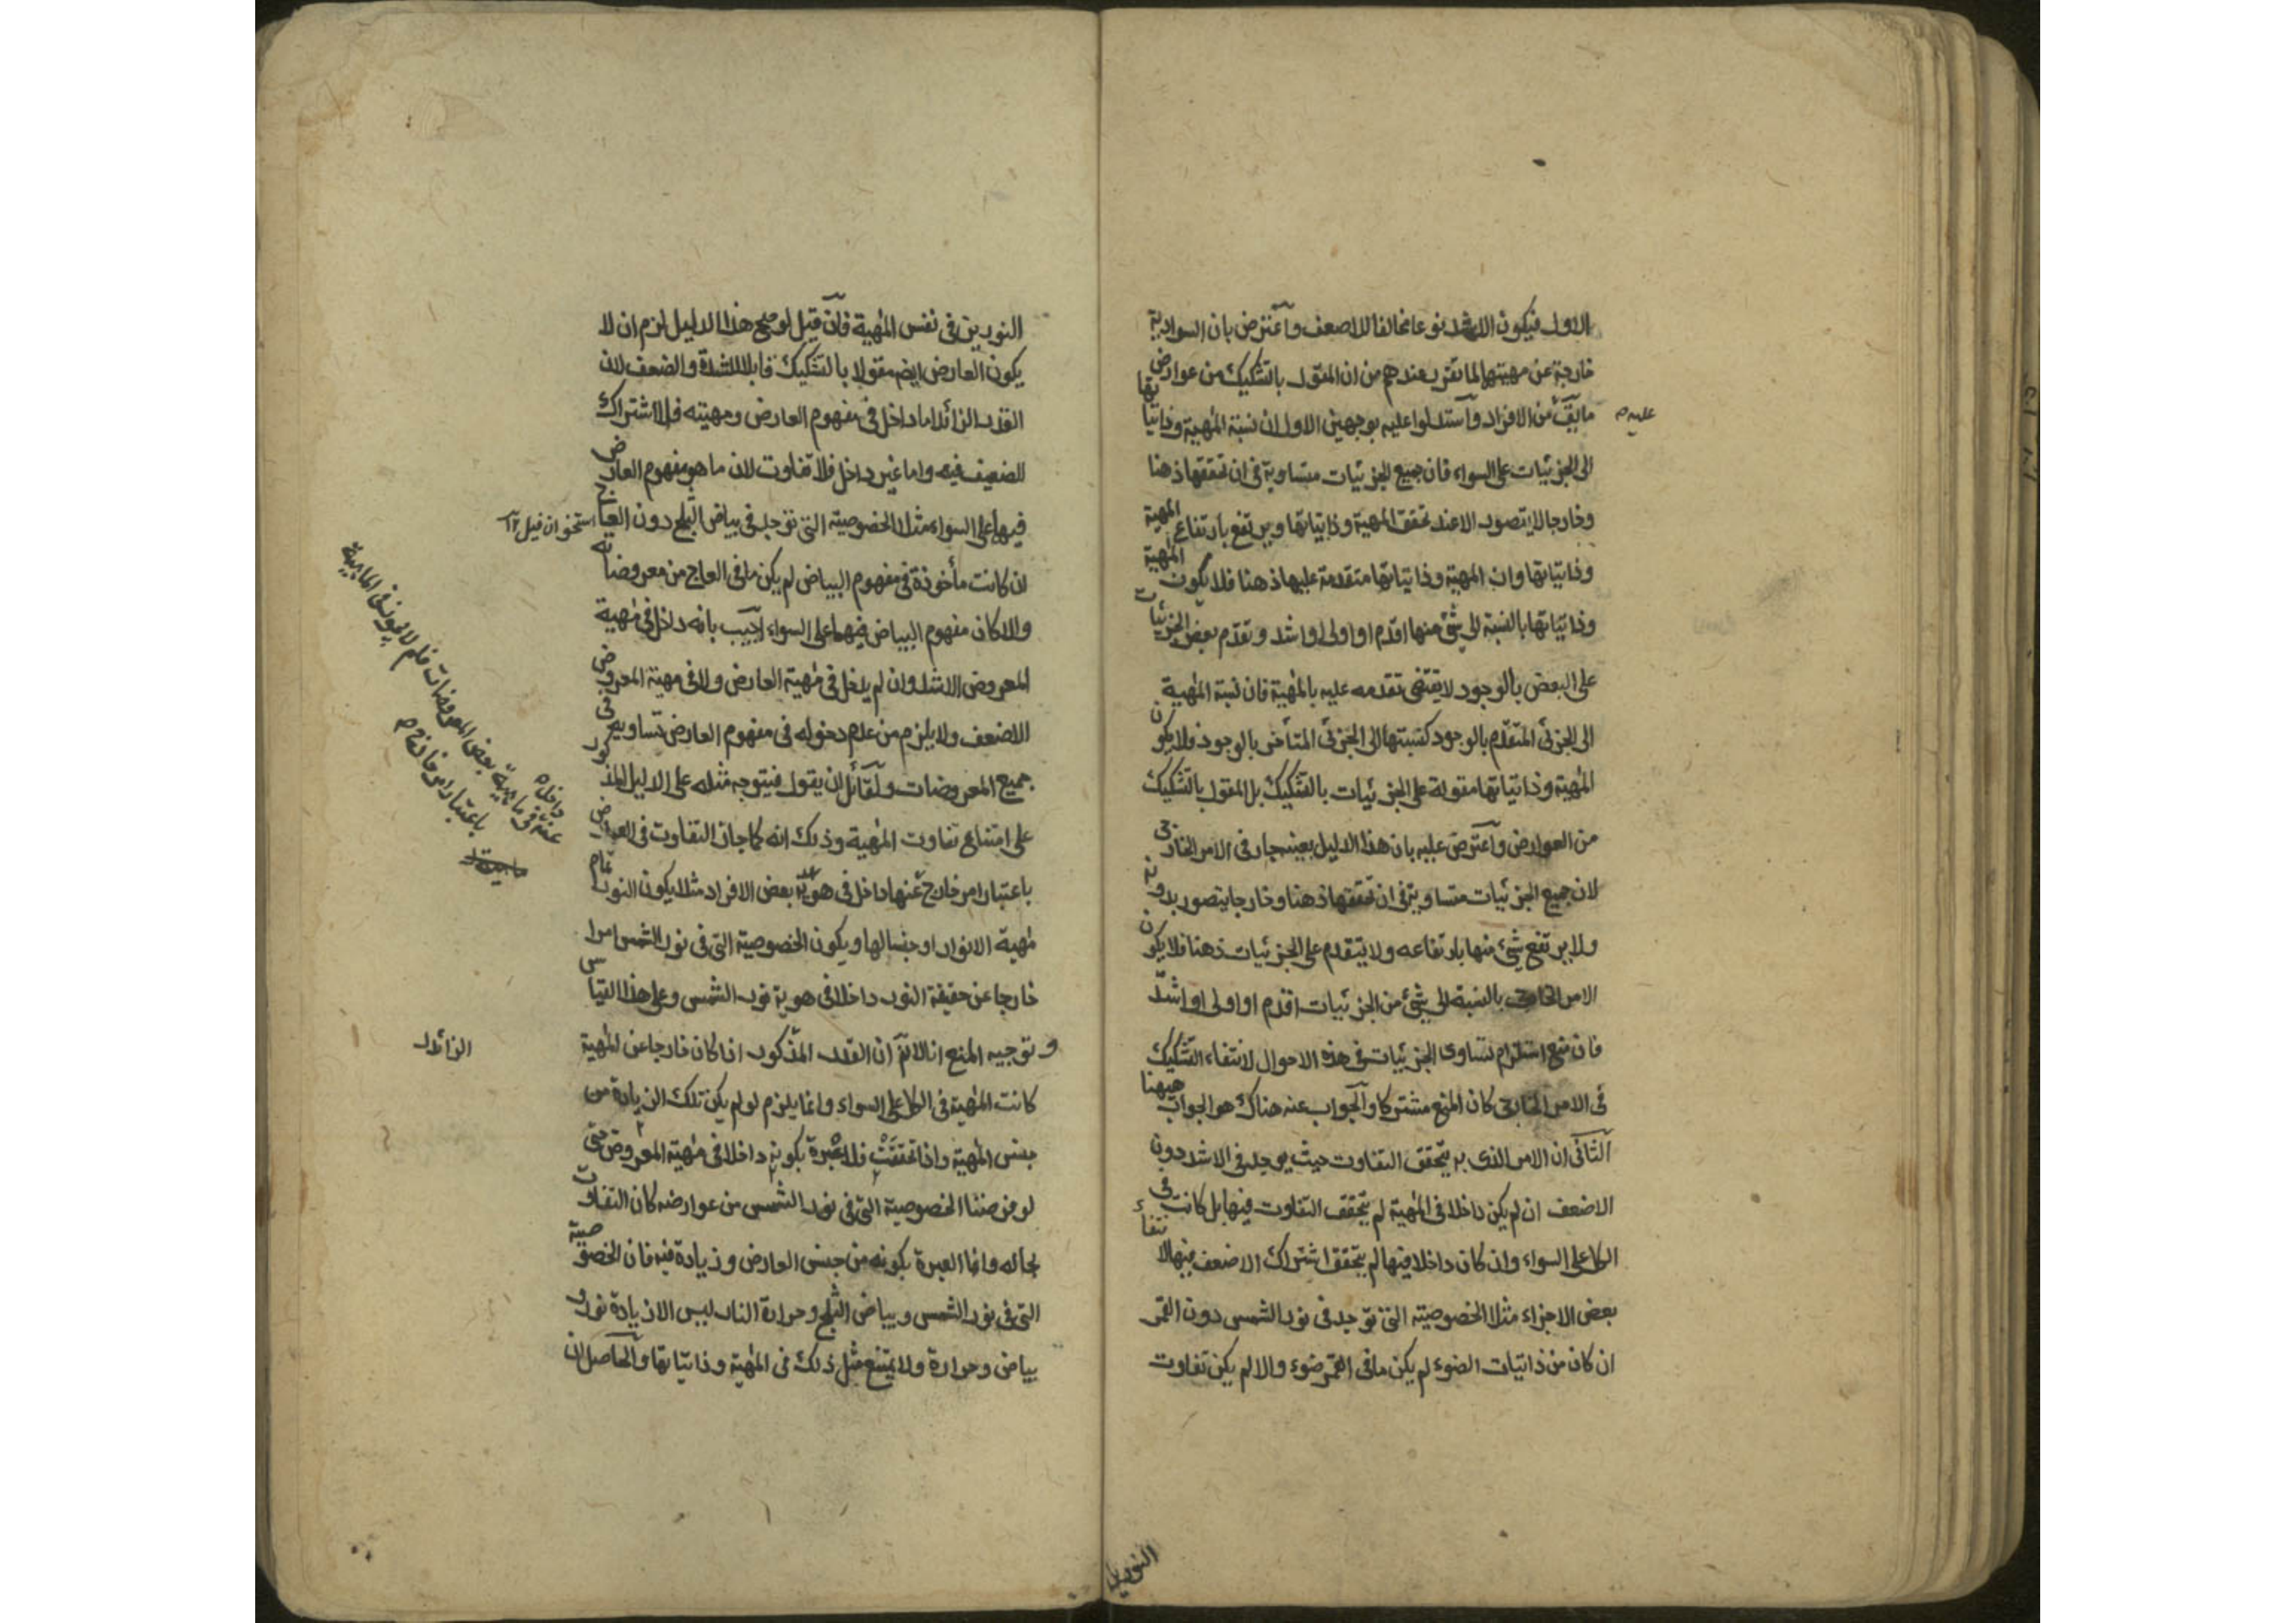 الاول فيكون الاشد نوعا مخالفا للاضعف واعترض بان السوادية
خارجة عن مهيتها لما تقرر عندهم من ان المقول بالتشكيك من عوارض
ما يق من الافراد واستدلوا عليه بوجهين الاول ان نسبة المهية وذاتياتها
عليه
الى الجزئيات على السواء فان جميع الجزئيات متساوية في ان تحققها ذهنا
وخارجا لا يتصور الا عند تحقق المهية وذاتياتها ويرتفع بارتفاع المهية
وذاتياتها وان المهية وذاتياتها متقدمة عليها ذهنا فلا يكون المهية
وذاتياتها بالنسبة الى شئ منها اقدم او اولى او اشد وتقدم بعض الجزئيات
على البعض بالوجود لا يقتضى تقدمه عليه بالمهية فان نسبة المهية
الى الجزئى المتقدم بالوجود كنسبتها الى الجزئى المتأخر بالوجود فلا يكون
المهية وذاتياتها مقولة على الجزئيات بالتشكيك بل المقول بالتشكيك
من العوارض واعترض عليه بان هذا الدليل بعينه جار في الامر الخارجى
لان جميع الجزئيات متساوية في ان تحققها ذهنا وخارجا يتصور بدونه
ولا يرتفع شئ منها بارتفاعه ولا يتقدم على الجزئيات ذهنا فلا يكون
الامر الخارجى بالنسبة الى شئ من الجزئيات اقدم او اولى او اشد
فان منع استلزام تساوى الجزئيات في هذه الاحوال لانتفاء التشكيك
في الامر الخارجى كان المنع مشتركا والجواب عنه هناك هو الجواب ههنا
الثانى ان الامر الذى به يتحقق التفاوت حيث يوجد في الاشد دون
الاضعف ان لم يكن داخلا في المهية لم يتحقق التفاوت فيها بل كانت في
الكل على السواء وان كان داخلا فيها لم يتحقق اشتراك الاضعف فيها لانتفاء
بعض الاجزاء مثلا الخصوصية التى توجد في نور الشمس دون القمر
ان كان من ذاتيات الضوء لم يكن ما في القمر ضوء والا لم يكن تفاوت
النورين
النورين في نفس المهية فان قيل لو صح هذا الدليل لزم ان لا
يكون العارض ايضم مقولا بالتشكيك قابلا للشدة والضعف لان
القدر الزائد اما داخل في مفهوم العارض ومهيته فلا اشتراك
للضعيف فيه واما غير داخل فلا تفاوت لان ما هو مفهوم العارض
فيهما على السواء مثلا الخصوصية التى توجد في بياض الثلج دون العاج
استخوان فيل ١٢
ان كانت مأخوذة في مفهوم البياض لم يكن ما في العاج من معروضاته
والا كان مفهوم البياض فيهما على السواء اجيب بانه داخل في مهية
المعروض الاشد وان لم يدخل في مهية العارض ولا في مهية المعروض
الاضعف ولا يلزم من عدم دخوله في مفهوم العارض تساويه في
جميع المعروضات ولقائل ان يقول فيتوجه مثله على الدليل المذكور
على امتناع تفاوت المهية وذلك انه كما جاز التفاوت في العوارض
باعتبار امر خارج عنها داخل في هوية بعض الافراد مثلا يكون النور تمام
مهية الانوار او جنسا لها ويكون الخصوصية التى في نور الشمس امرا
خارجا عن حقيقة النور داخلا في هوية نور الشمس وعلى هذا القياس
وتوجيه المنع انا لا نم ان القدر المذكور اذا كان خارجا عن المهية
الزائد
كانت المهية في الكل على السواء وانما يلزم لو لم يكن تلك الزيادة من
جنس المهية واذا تحققت فلا عبرة بكونه داخلا في مهية المعروض حتى
لو فرضنا الخصوصية التى في نور الشمس من عوارضه كان التفاوت
بحاله وانما العبرة بكونه من جنس العارض وزيادة فيه فان الخصوصية
التى في نور الشمس وبياض الثلج وحرارة النار ليس الا زيادة نور و
بياض وحرارة ولا يمتنع مثل ذلك في المهية وذاتياتها والحاصل ان
باعتبار امر خارج
عنه داخل في ماهية بعض المعروضات فلم لا يجوز في الماهية